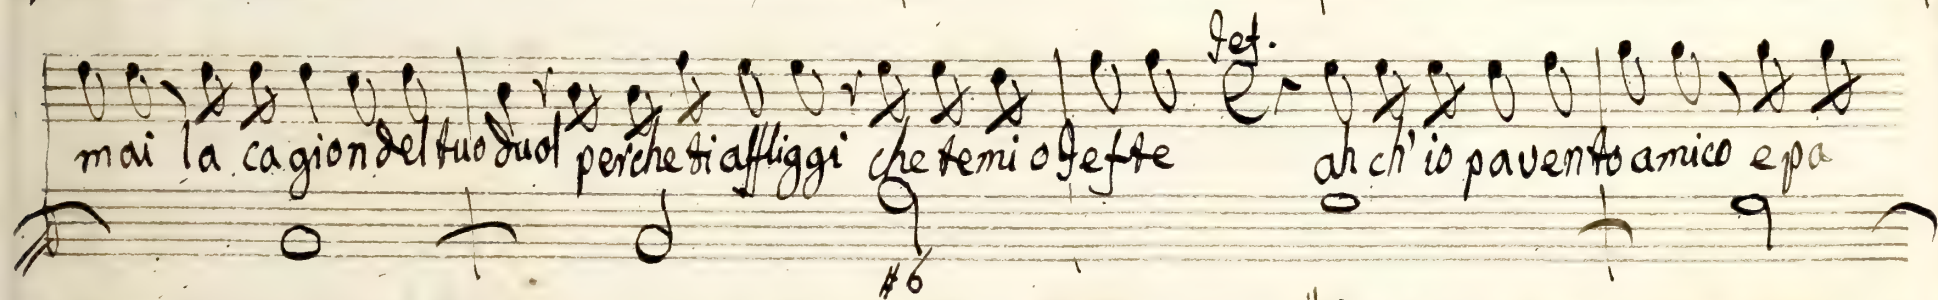 Jef.
mai la cagion del tuo duol perche ti affliggi che temi o Jefte ah ch'io pavento amico e pa
#6